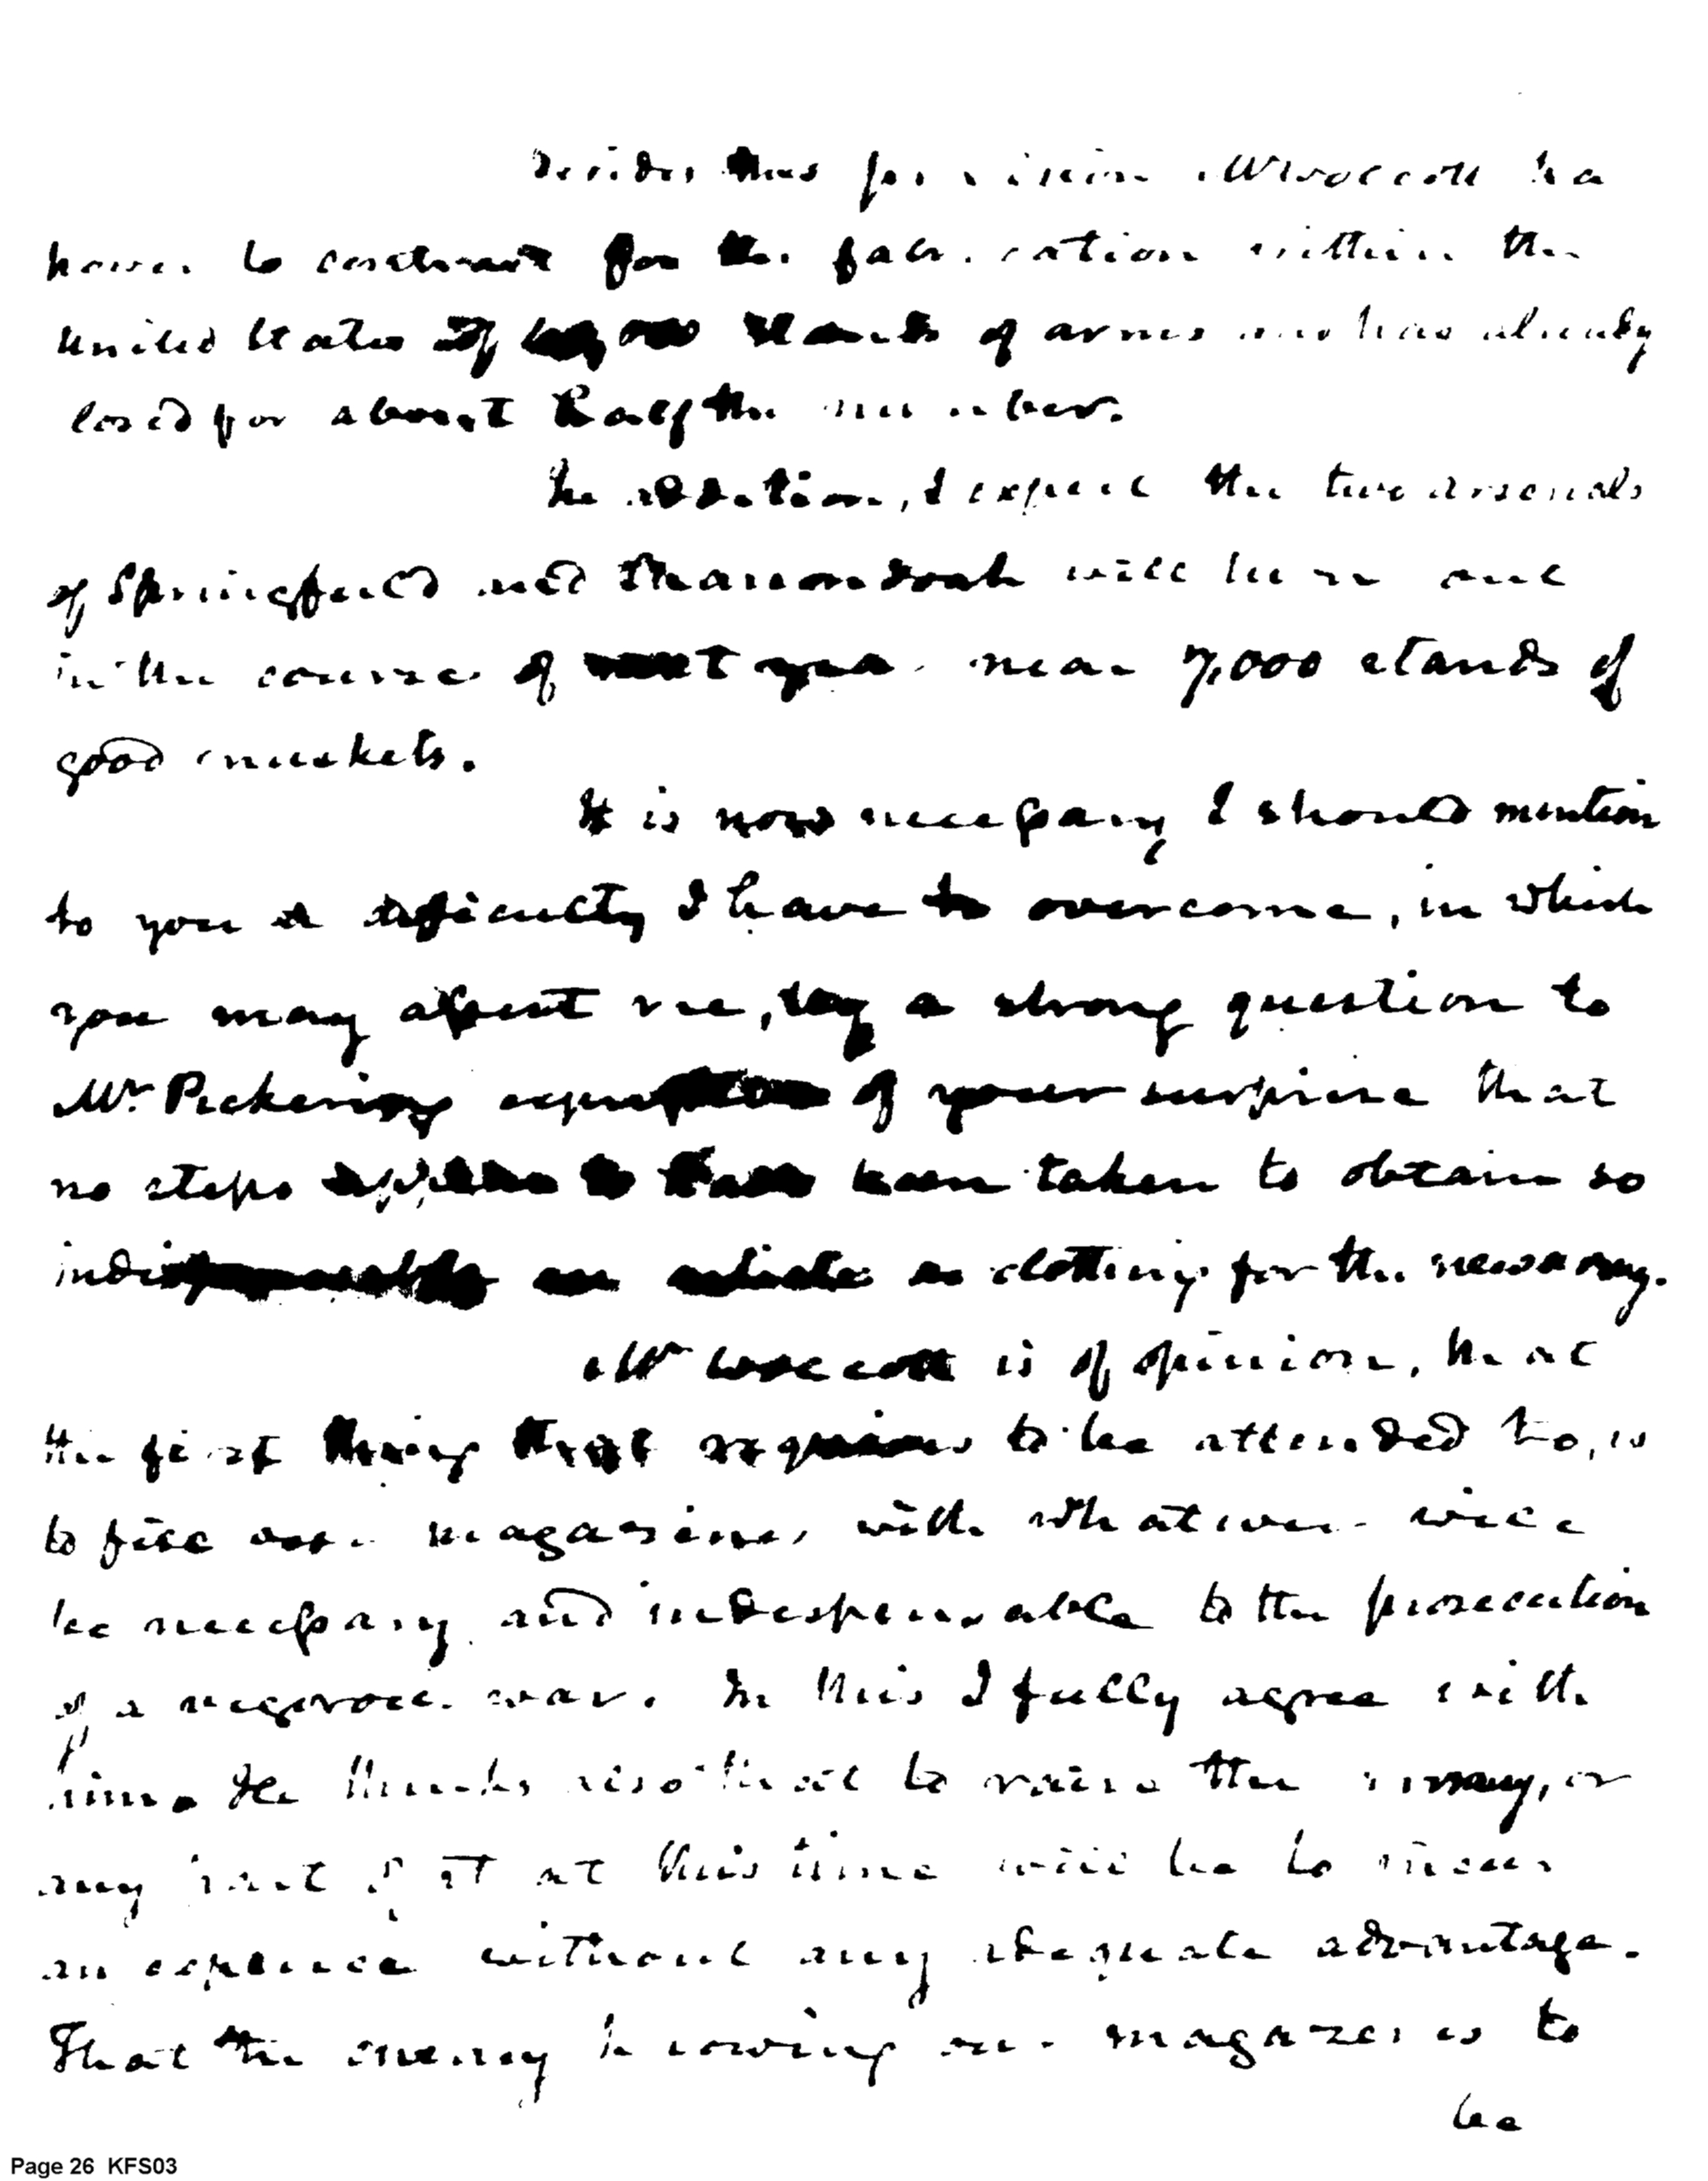 Besides this provision Mr Wolcott has
power to contract for the fabrication within the
United States of stands of arms and has already
closed for about half the number.
In addition, I expect the two arsenals
of Springfield and Shanandoah will turn out
in the course of next year near 7,000 stands of
good muskets.
It is now necessary I should mention
to you a dificulty I have to overcome, in which
you may assist me, by a strong question to
Mr. Pickering expressive of your surprise that
no steps appear to have been taken to obtain so
indispensable an article as clothing for the new army.
Mr Wolcott is of opinion, that
the first thing that requires to be attended to, is
to fill our magazines with whatever will
be necessary and indespensable to the prosecution
of a vigorous war. In this I fully agree with
him. He thinks also that to raise the army, or
any part of it at this time will be to incur
an expence without any adequate advantage.
That the enemy knowing our magazines to
be
Page 26 KFS03